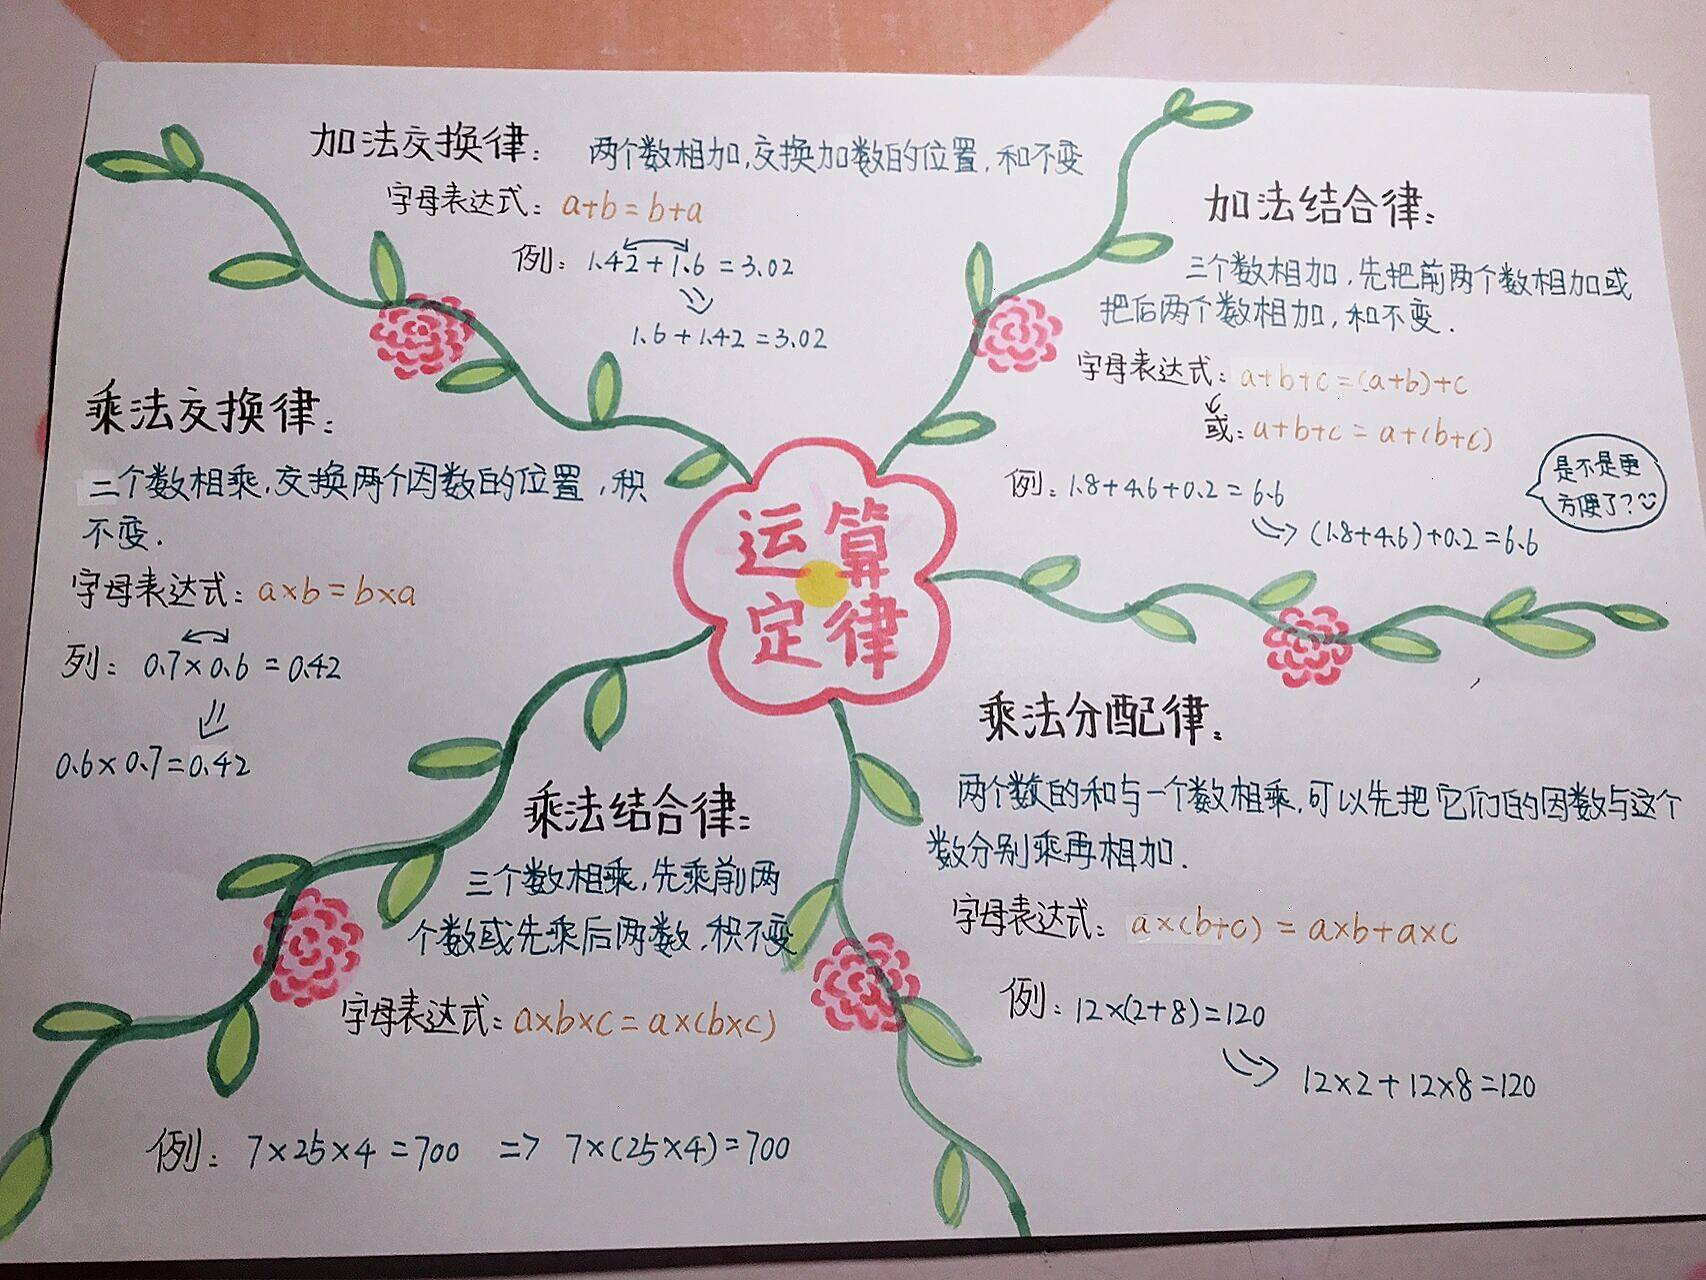 加法交换律：两个数相加,交换加数的位置,和不变
字母表达式：a+b=b+a
例：1.42+1.6=3.02
1.6+1.42=3.02
加法结合律：
三个数相加,先把前两个数相加或
把后两个数相加,和不变.
字母表达式：a+b+c=(a+b)+c
或：a+b+c=a+(b+c)
例：1.8+4.6+0.2=6.6
(1.8+4.6)+0.2=6.6
是不是更
方便了?
乘法交换律：
二个数相乘,交换两个因数的位置,积
不变.
字母表达式：a×b=b×a
列：0.7×0.6=0.42
0.6×0.7=0.42
运算
定律
乘法结合律：
三个数相乘,先乘前两
个数或先乘后两数,积不变
字母表达式：a×b×c=a×(b×c)
例：7×25×4=700 => 7×(25×4)=700
乘法分配律：
两个数的和与一个数相乘,可以先把它们的因数与这个
数分别乘再相加.
字母表达式：a×(b+c)=a×b+a×c
例：12×(2+8)=120
12×2+12×8=120